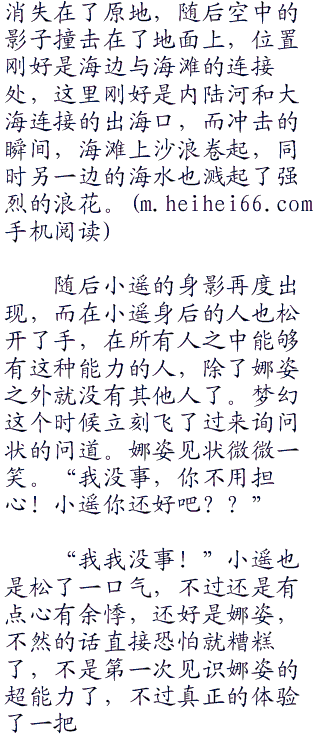 消失在了原地，随后空中的
影子撞击在了地面上，位置
刚好是海边与海滩的连接
处，这里刚好是内陆河和大
海连接的出海口，而冲击的
瞬间，海滩上沙浪卷起，同
时另一边的海水也溅起了强
烈的浪花。(m.heihei66.com
手机阅读)
随后小遥的身影再度出
现，而在小遥身后的人也松
开了手，在所有人之中能够
有这种能力的人，除了娜姿
之外就没有其他人了。梦幻
这个时候立刻飞了过来询问
状的问道。娜姿见状微微一
笑。“我没事，你不用担
心！小遥你还好吧？？”
“我我没事！”小遥也
是松了一口气，不过还是有
点心有余悸，还好是娜姿，
不然的话直接恐怕就糟糕
了，不是第一次见识娜姿的
超能力了，不过真正的体验
了一把